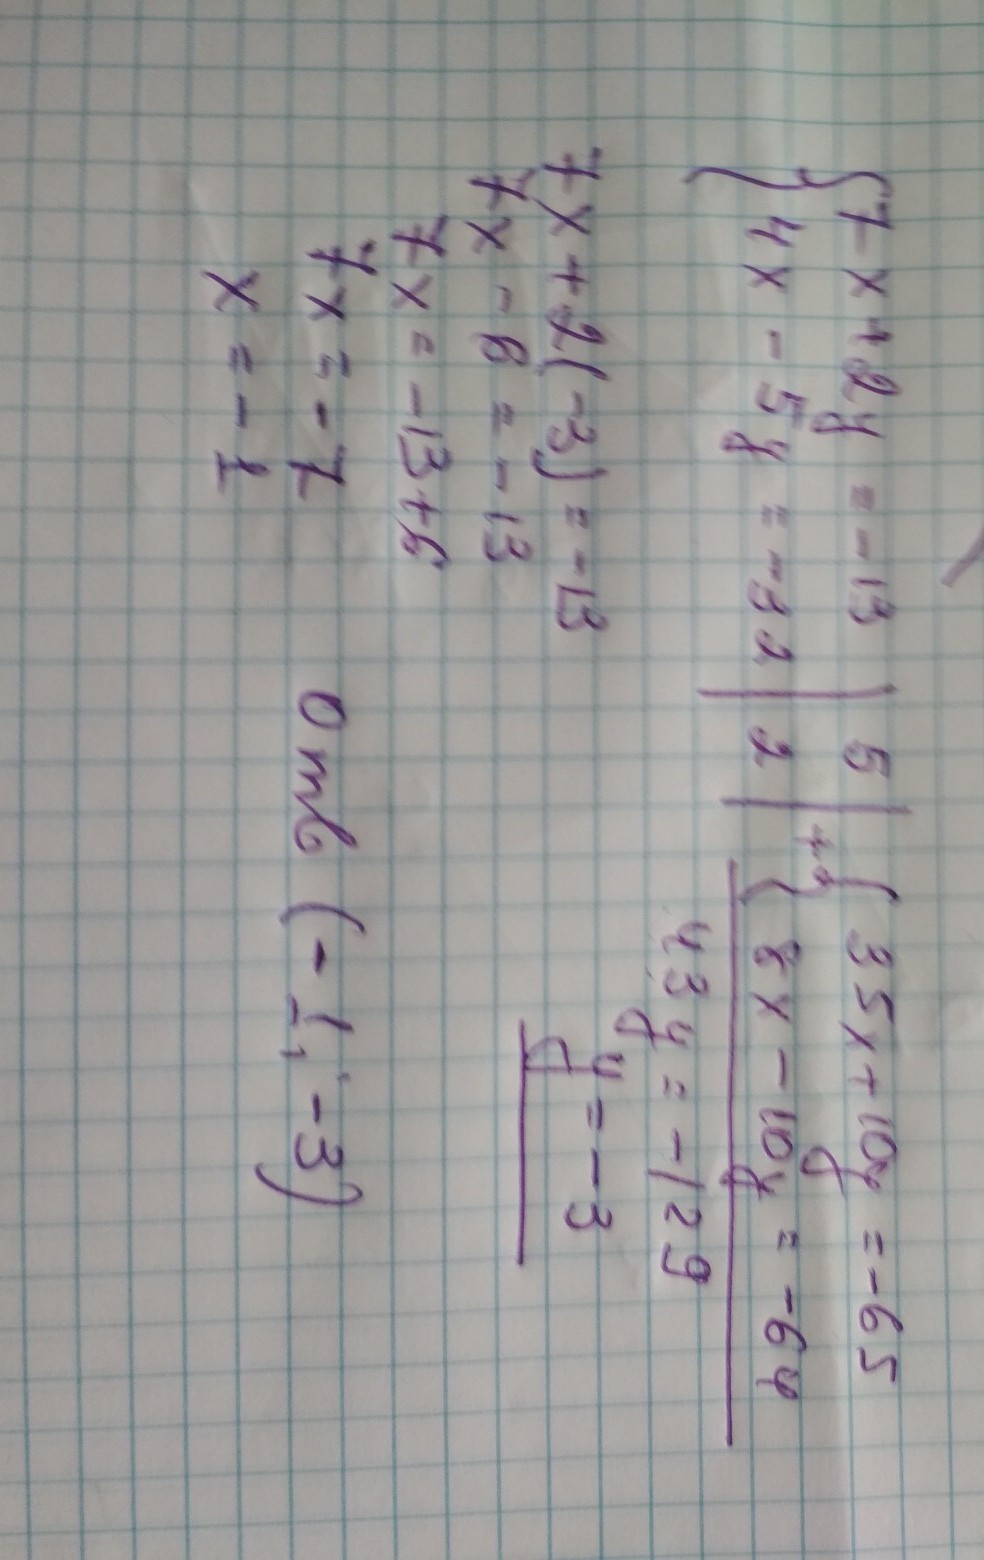 { 7x + 2y = -13 | 5 | + { 35x + 10y = -65
{ 4x - 5y = -32 | 2 | { 8x - 10y = -64
43y = -129
y = -3
7x + 2(-3) = -13
7x - 6 = -13
7x = -13 + 6
7x = -7
x = -1
Отв (-1, -3)